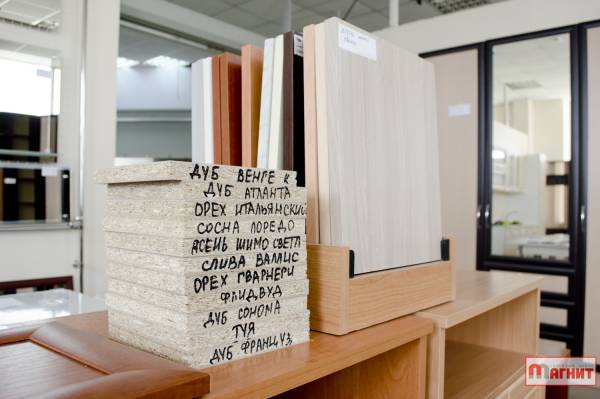 ДУБ ВЕНГЕ К
ДУБ АТЛАНТА
ОРЕХ ИТАЛЬЯНСКИЙ
СОСНА ЛОРЕДО
ЯСЕНЬ ШИМО СВЕТЛ
СЛИВА ВАЛЛИС
ОРЕХ ГВАРНЕРИ
ФЛИДВУД
ДУБ СОНОМА
ТУЯ
ДУБ ФРАНЦУЗ
МАГНИТ